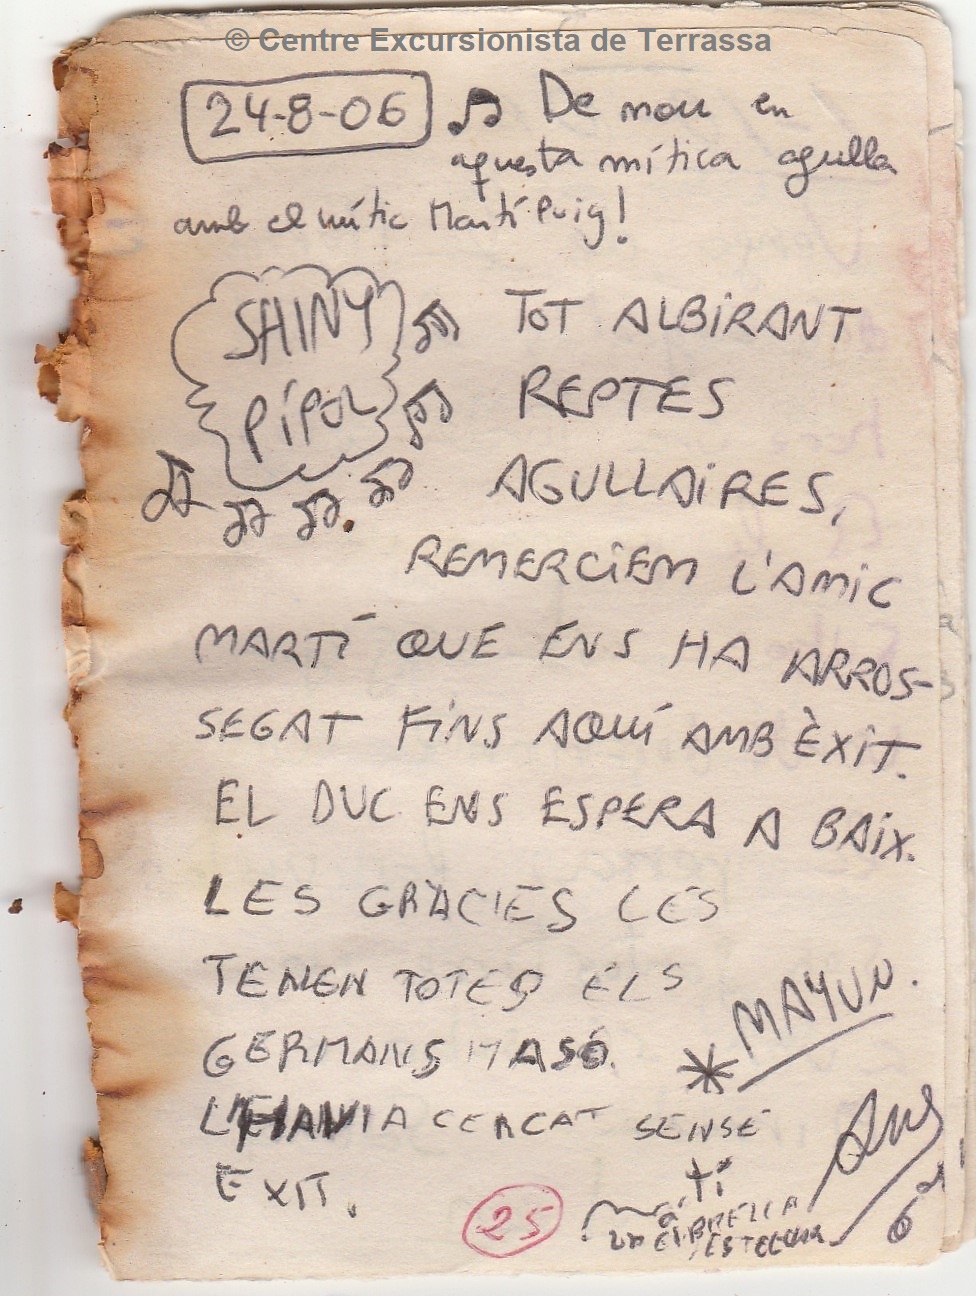 © Centre Excursionista de Terrassa
24-8-06 ♫ De nou en
aquesta mítica agulla
amb el mític Martí Puig!
SHINY
PÍPOL
TOT ALBIRANT
REPTES
AGULLAIRES,
REMERCIEM L'AMIC
MARTÍ QUE ENS HA ARROS-
SEGAT FINS AQUÍ AMB ÈXIT.
EL DUC ENS ESPERA A BAIX.
LES GRÀCIES LES
TENEN TOTES ELS
GERMANS MASÓ.
CERCAT SENSE
EXIT.
* MAYUN.
25